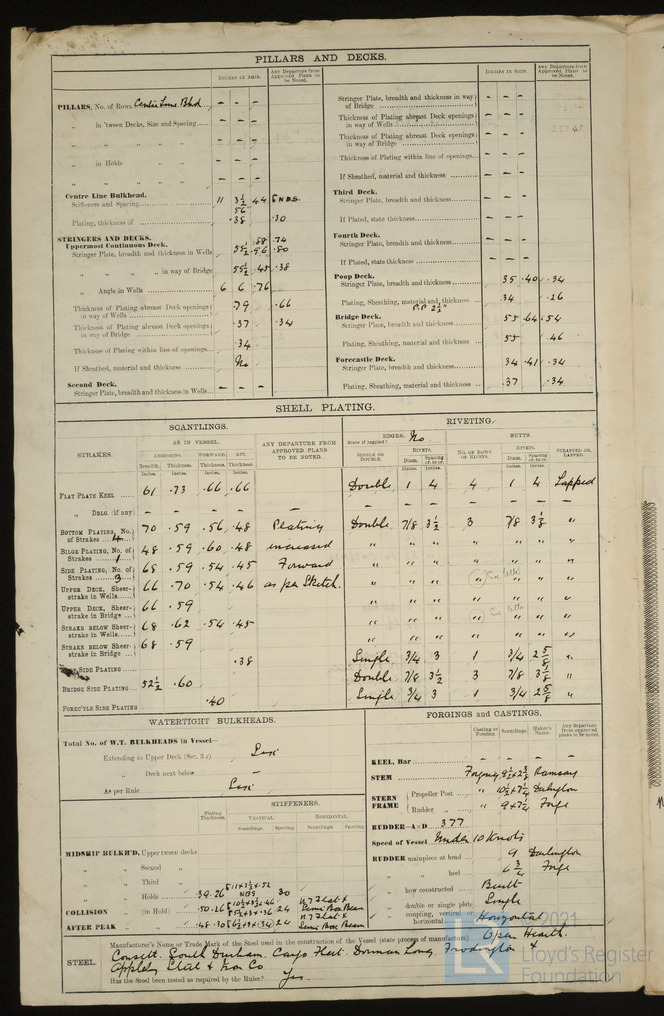 PILLARS AND DECKS.
INCHES IN SHIP.
Any Departure from Approved Plans to be Noted.
PILLARS, No. of Rows. Centre Line Bhd - - -
„ in 'tween Decks, Size and Spacing - - -
„ „ „ „ - - -
„ in Holds - - -
„ „ „ „ - - -
Centre Line Bulkhead.
Stiffeners and Spacing 11 3½ .44
56
Plating, thickness of .38 .30
STRINGERS AND DECKS.
Uppermost Continuous Deck. .88 .74
Stringer Plate, breadth and thickness in Wells 55½ .96 .80
„ „ „ „ in way of Bridge 55½ .45 .38
„ Angle in Wells 6 6 .76
Thickness of Plating abreast Deck openings in way of Wells .79 .66
Thickness of Plating abreast Deck openings in way of Bridge .37 .34
Thickness of Plating within line of openings .34
If Sheathed, material and thickness No
Second Deck.
Stringer Plate, breadth and thickness in Wells - - -
INCHES IN SHIP.
Any Departure from Approved Plans to be Noted.
Stringer Plate, breadth and thickness in way of Bridge - - -
Thickness of Plating abreast Deck openings in way of Wells - - -
Thickness of Plating abreast Deck openings in way of Bridge - - -
Thickness of Plating within line of openings - - -
If Sheathed, material and thickness - - -
Third Deck.
Stringer Plate, breadth and thickness - - -
If Plated, state thickness - - -
Fourth Deck.
Stringer Plate, breadth and thickness - - -
If Plated, state thickness - - -
Poop Deck.
Stringer Plate, breadth and thickness 35 .40 .34
Plating, Sheathing, material and thickness .34 .26
P.P 2½"
Bridge Deck.
Stringer Plate, breadth and thickness 55 .64 .54
Plating, Sheathing, material and thickness 55 .46
Forecastle Deck.
Stringer Plate, breadth and thickness 34 .41 .34
Plating, Sheathing, material and thickness .37 .34
SHELL PLATING.
SCANTLINGS.
RIVETING.
STRAKES.
AS IN VESSEL.
AMIDSHIPS. FORWARD. AFT.
Breadth. Thickness. Thickness. Thickness.
Inches. Inches. Inches. Inches.
ANY DEPARTURE FROM APPROVED PLANS TO BE NOTED.
EDGES. No
State if joggled?
SINGLE OR DOUBLE.
RIVETS.
Diam. Spacing cr. to cr.
Inches. Inches.
BUTTS.
NO. OF ROWS OF RIVETS.
RIVETS.
Diam. Spacing cr. to cr.
Inches. Inches.
STRAPPED OR LAPPED.
FLAT PLATE KEEL 61 .73 .66 .66 Double 1 4 4 1 4 Lapped
„ DBLG. (if any) - - - - - - - - - - -
BOTTOM PLATING, No. of Strakes 4 70 .59 .56 .48 Plating Double 7/8 3½ 3 7/8 3⅛ „
BILGE PLATING, No. of Strakes 1 48 .59 .60 .48 increased „ „ „ „ „ „ „
SIDE PLATING, No. of Strakes 3 68 .59 .54 .45 Forward „ „ „ „ „ „ „
UPPER DECK, Sheerstrake in Wells 66 .70 .54 .46 as per Sketch. „ „ „ „ „ „ „
UPPER DECK, Sheerstrake in Bridge 66 .59 „ „ „ „ „ „ „
STRAKE BELOW Sheerstrake in Wells 68 .62 .54 .45 „ „ „ „ „ „ „
STRAKE BELOW Sheerstrake in Bridge 68 .59 „ „ „ „ „ „ „
SIDE PLATING .38 Single 3/4 3 1 3/4 2⅝ „
BRIDGE SIDE PLATING 52½ .60 Double 7/8 3½ 3 7/8 3⅛ „
FOREC'TLE SIDE PLATING .40 Single 3/4 3 1 3/4 2⅝ „
WATERTIGHT BULKHEADS.
Total No. of W.T. BULKHEADS in Vessel—
Extending to Upper Deck (Sec. 3 c)
„ Deck next below -
As per Rule
STIFFENERS.
Plating Thickness.
VERTICAL. HORIZONTAL.
Scantlings. Spacing Scantlings. Spacing
MIDSHIP BULKH'D, Upper tween decks
„ „ Second „
„ „ Third „
„ „ Holds .39 .26 30
COLLISION „ (in Hold) .50 .26 24
AFTER PEAK „ „ 24
FORGINGS and CASTINGS.
Casting or Forging. Scantlings. Maker's Name. Any departure from approved plans to be noted.
KEEL, Bar - - - -
STEM Forging 9½ x 2¾ Ramsay
STERN FRAME
Propeller Post „ 10½ x 7¼ Darlington
Rudder „ „ 9 x 7¼ Forge
RUDDER—A×D 377
Speed of Vessel Under 10 Knots
RUDDER mainpiece at head 9 Darlington
„ „ heel 6¾ Forge
„ how constructed Built
„ double or single plate Single
„ coupling, vertical or horizontal Horizontal
STEEL.
Manufacturer's Name or Trade Mark of the Steel used in the construction of the Vessel (state process of manufacture) Open Hearth.
Consett. South Durham. Cargo Fleet. Dorman Long, Frodingham &
Appleby Steel & Iron Co
Has the Steel been tested as required by the Rules? Yes.
2021
Lloyd's Register
Foundation